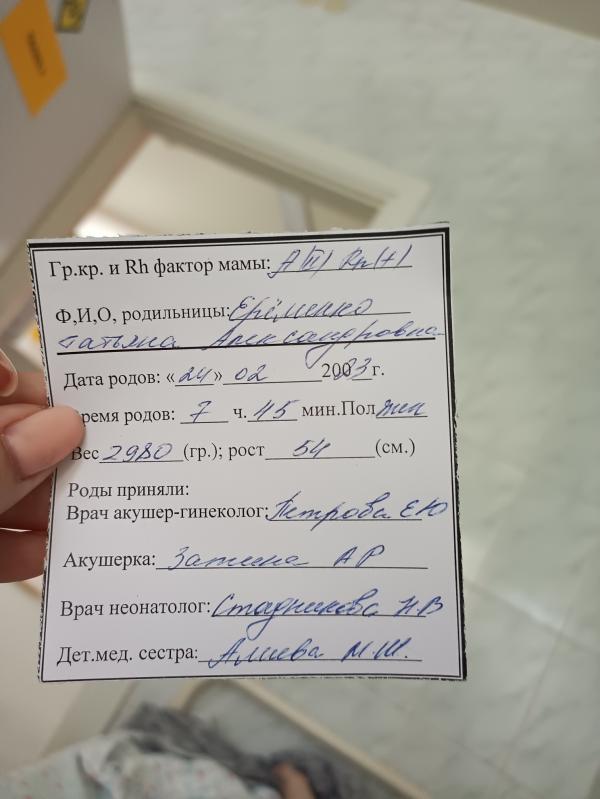 Гр.кр. и Rh фактор мамы: A(II) Rh(+)
Ф,И,О, родильницы: Ерёменко
Татьяна Александровна
Дата родов: «24» 02 20083 г.
ремя родов: 7 ч. 45 мин. Пол
Вес 2980 (гр.); рост 54 (см.)
Роды приняли:
Врач акушер-гинеколог: Петрова Е Ю
Акушерка: А Р
Врач неонатолог: Стадникова Н.В
Дет.мед. сестра: Алиева М.Ш.